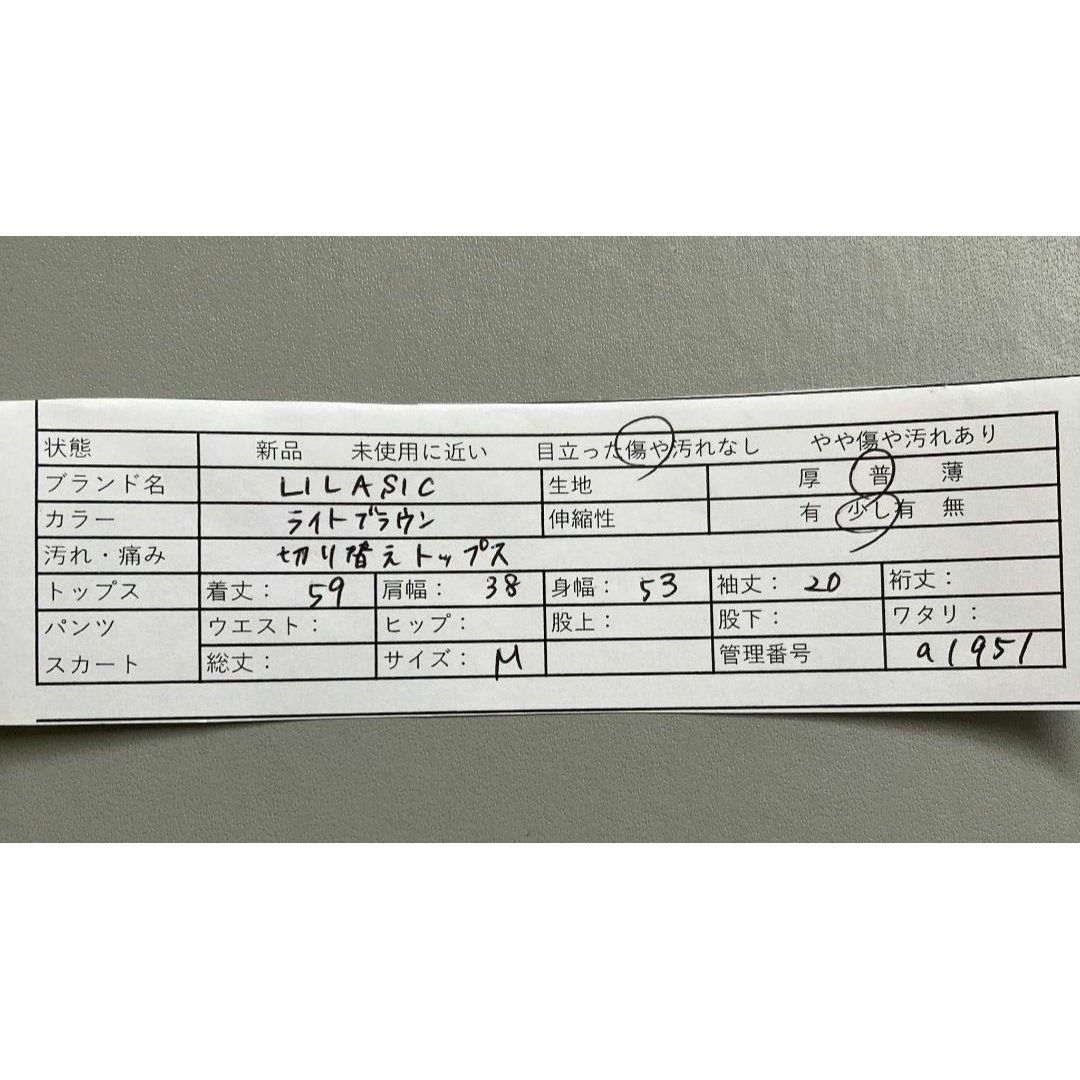 状態 新品 未使用に近い 目立った傷や汚れなし やや傷や汚れあり
ブランド名 LILASIC 生地 厚 普 薄
カラー ライトブラウン 伸縮性 有 少し有 無
汚れ・痛み 切り替えトップス
トップス 着丈： 59 肩幅： 38 身幅： 53 袖丈： 20 裄丈：
パンツ ウエスト： ヒップ： 股上： 股下： ワタリ：
スカート 総丈： サイズ： M 管理番号 a1951